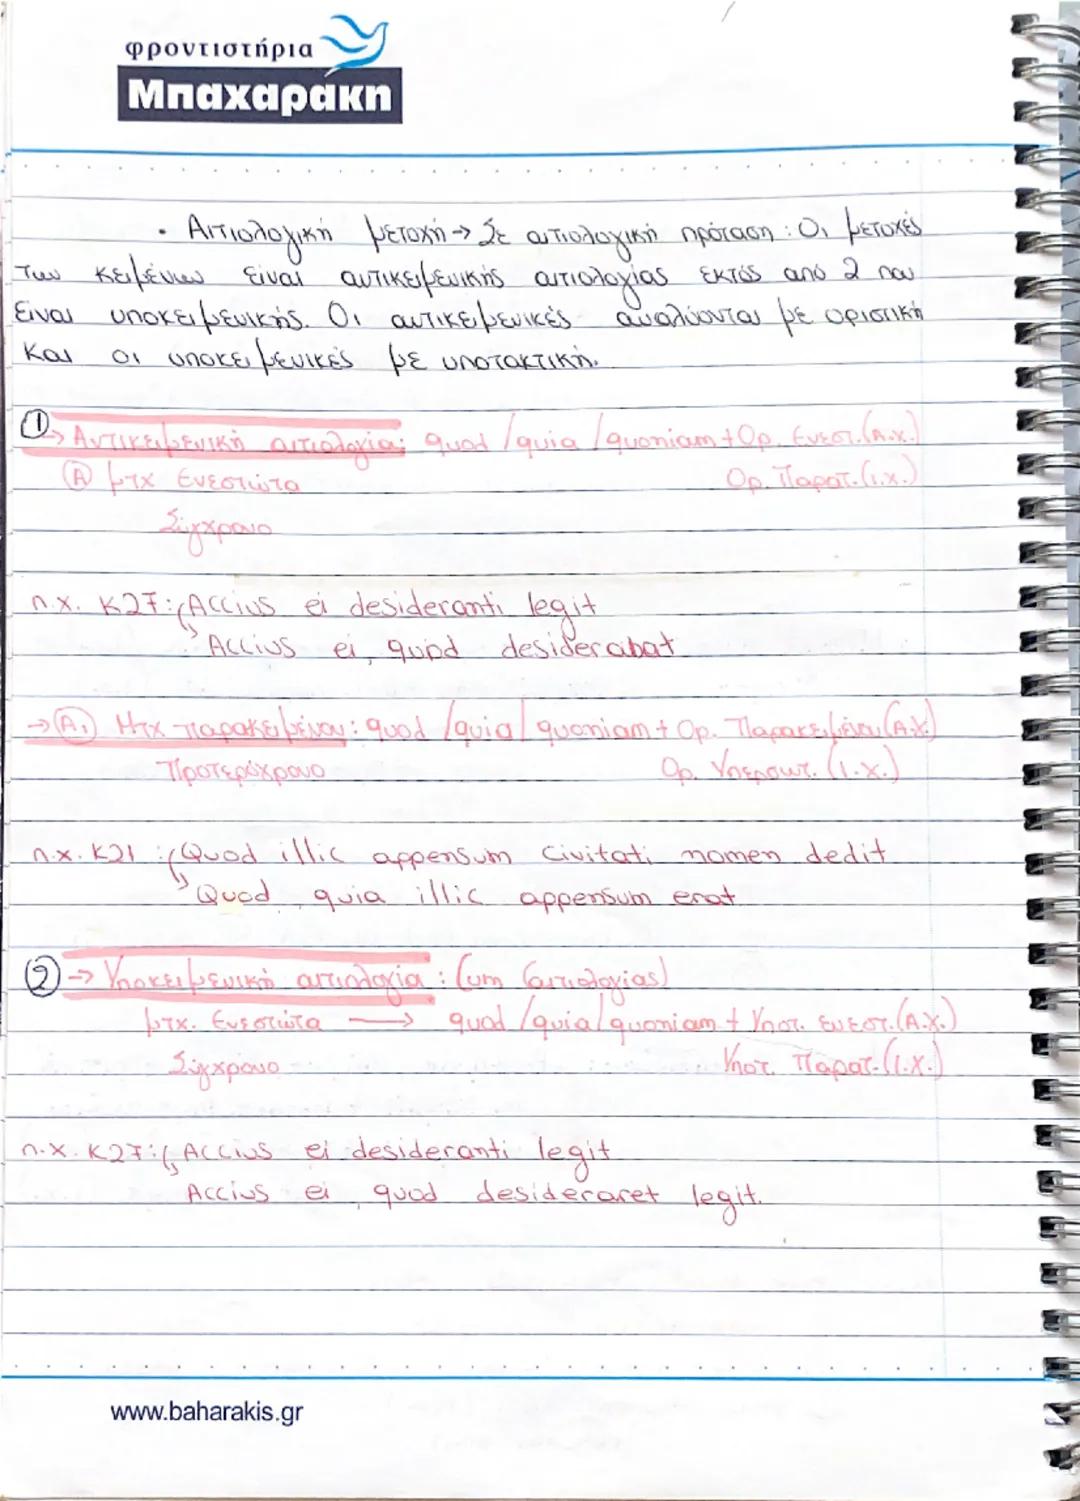 φροντιστήρια
Μπαχαράκη
• Αιτιολογική μετοχή → Σε αιτιολογική πρόταση: Οι μετοχές
των κειμένων είναι αντικειμενικής αιτιολογίας εκτός από 2 που
είναι υποκειμενικής. Οι αντικειμενικές αναλύονται με οριστική
και οι υποκειμενικές με υποτακτική.
① → Αντικειμενική αιτιολογία: quod /quia /quoniam + Ορ. Ενεστ. (Α.Χ.)
Ⓐ μτχ Ενεστώτα Ορ. Παρατ. (Ι.Χ.)
Σύγχρονο
π.χ. Κ27: Accius ei desideranti legit
↳ Accius ei, quod desiderabat
→ (Α.) Μτχ παρακειμένου: quod /quia / quoniam + Ορ. Παρακειμένου (Α.Χ)
Προτερόχρονο Ορ. Υπερσυντ. (Ι.Χ.)
π.χ. Κ21: Quod illic appensum civitati nomen dedit
↳ Quod, quia illic appensum erat
② → Υποκειμενική αιτιολογία: Cum (αιτιολογίας)
μτχ. Ενεστώτα → quod /quia/ quoniam + Υποτ. Ενεστ. (Α.Χ.)
Σύγχρονο Υποτ. Παρατ. (Ι.Χ.)
π.χ. Κ27: Accius ei desideranti legit
↳ Accius ei, quod desideraret legit.
www.baharakis.gr